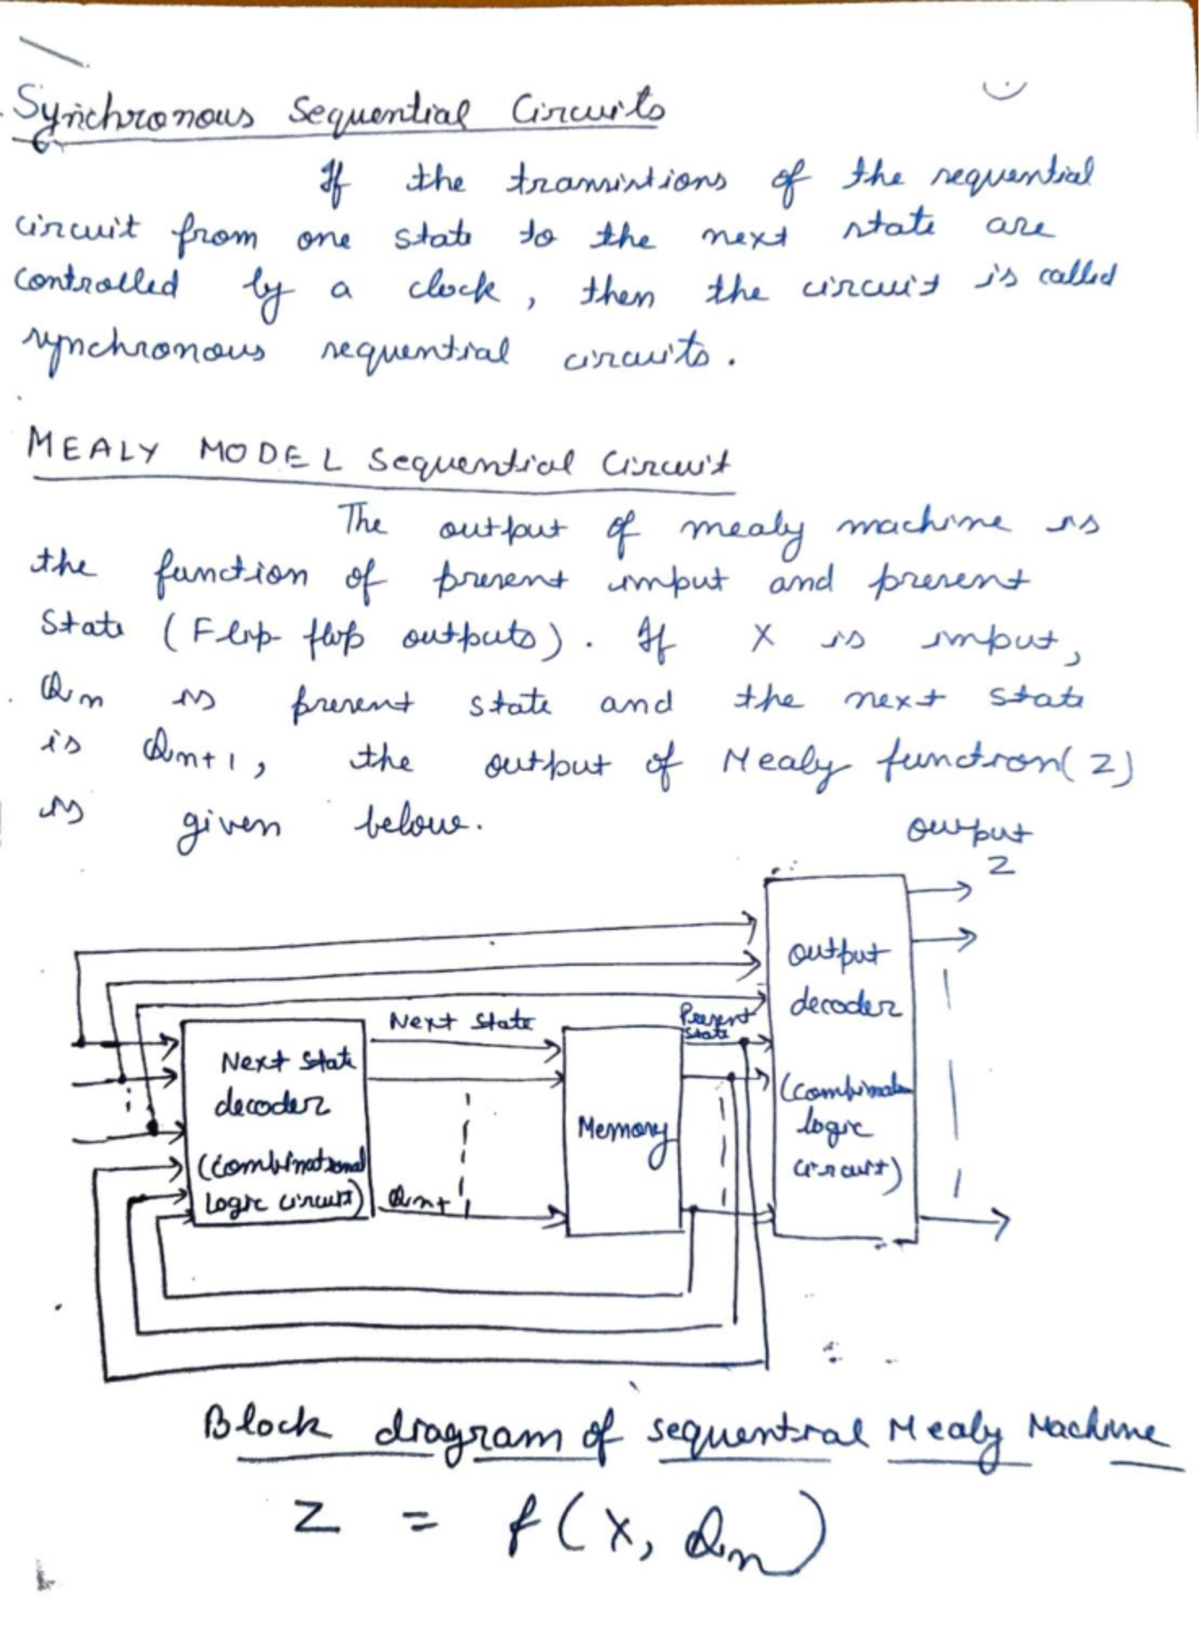 Synchronous Sequential Circuits
If the transistions of the sequential
circuit from one state to the next state are
controlled by a clock, then the circuit is called
synchronous sequential circuits.
MEALY MODEL Sequential Circuit
The output of mealy machine is
the function of present input and present
State (Flip-flop outputs). If X is input,
Qn is present state and the next state
is Qn+1, the output of Mealy function(Z)
is given below.
output
Z
Output
decoder
(combination
logic
circuit)
Next State
Present
State
Next State
decoder
(combinational
logic circuit)
Memory
Qn+1
Block diagram of sequential Mealy Machine
Z = f(X, Qn)